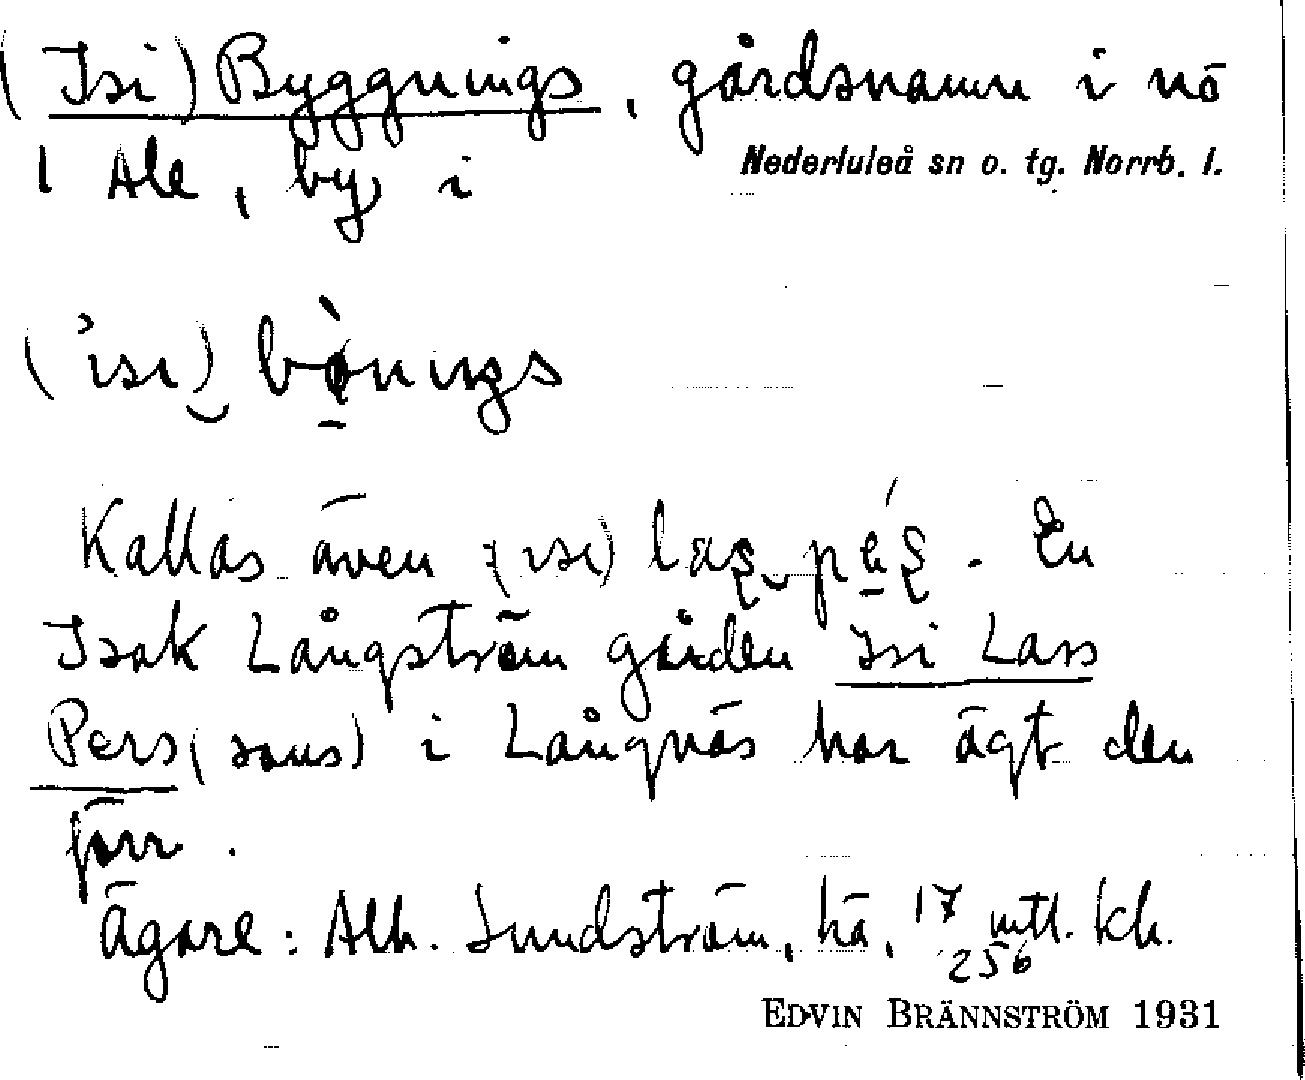 (Isi) Byggnings, gårdsnamn i nö
1 Ale, by i
Nederluleå sn o. tg. Norrb. l.
Kallas även (isi)
. En
Isak Långström gården Isi Lars
Pers(sons) i Långnäs har ägt den
förr.
Ägare: Alb. Sundström, hä, 17/256 mtl. kh.
EDVIN BRÄNNSTRÖM 1931